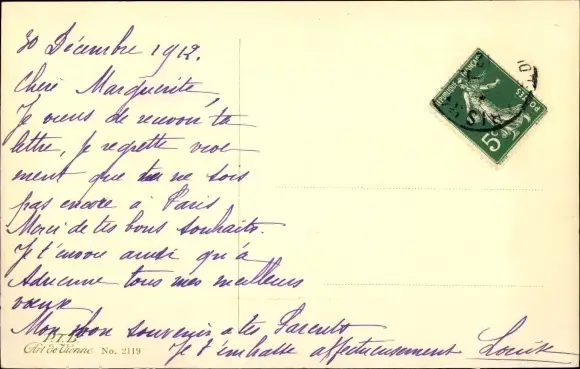 30 Décembre 1912.
Cheré Marguerite,
Je viens de recevoir ta
lettre, je regrette vive
ment que tu ne sois
pas encore à Paris
Merci de tes bons souhaits.
Je t'envoie ainsi qu'à
Adrienne tous mes meilleurs
vœux
Mon bon souvenir a tes Parents
Je t'embrasse affectueusement Louise
Art de Vienne No. 2119
REPUBLIQUE FRANÇAISE
POSTES
5c